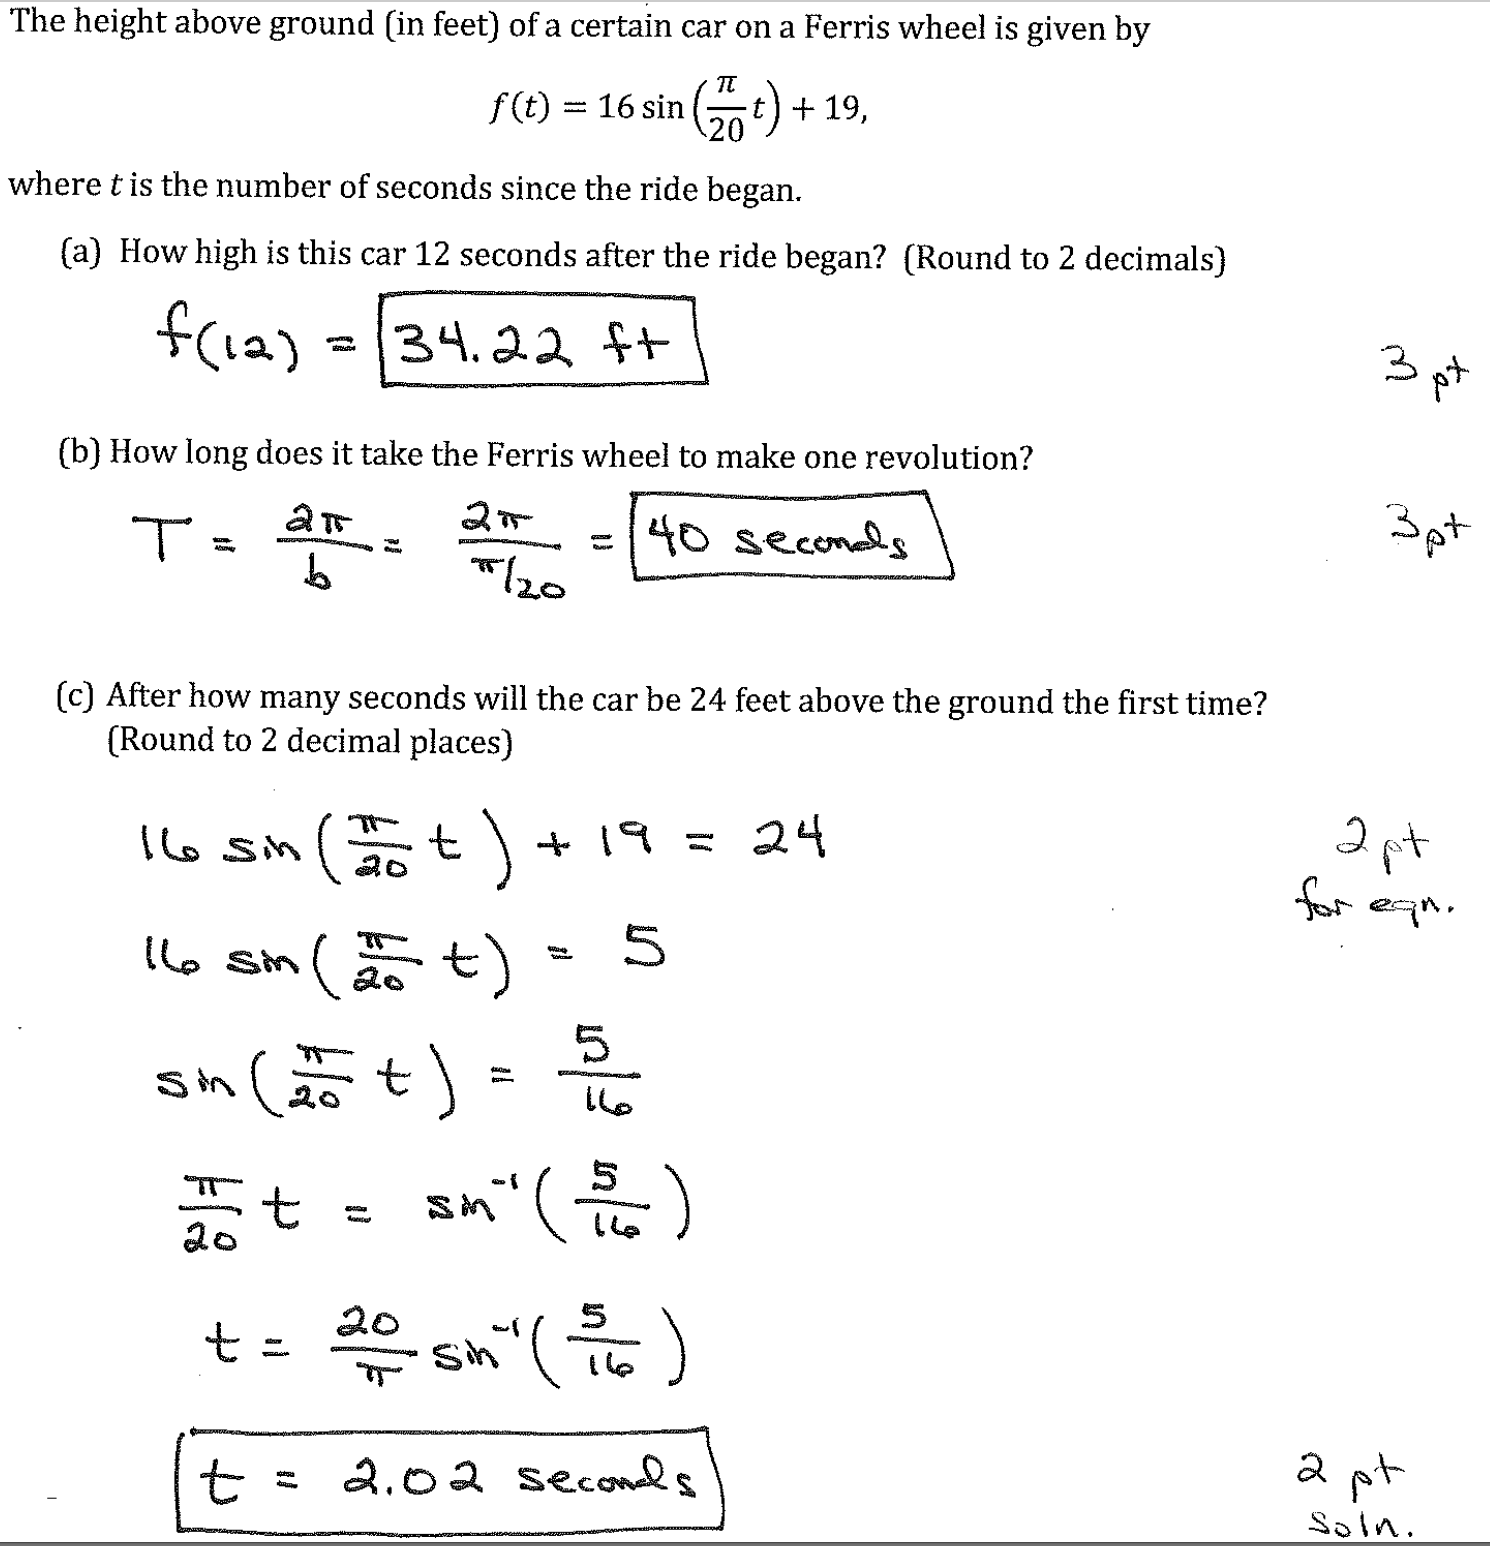 The height above ground (in feet) of a certain car on a Ferris wheel is given by
f(t) = 16 sin(π/20 t) + 19,
where t is the number of seconds since the ride began.
(a) How high is this car 12 seconds after the ride began? (Round to 2 decimals)
f(12) = 34.22 ft
3 pt
(b) How long does it take the Ferris wheel to make one revolution?
T = 2π/b = 2π/(π/20) = 40 seconds
3 pt
(c) After how many seconds will the car be 24 feet above the ground the first time?
(Round to 2 decimal places)
16 sin(π/20 t) + 19 = 24
2 pt
for eqn.
16 sin(π/20 t) = 5
sin(π/20 t) = 5/16
π/20 t = sin⁻¹(5/16)
t = 20/π sin⁻¹(5/16)
t = 2.02 seconds
2 pt
soln.